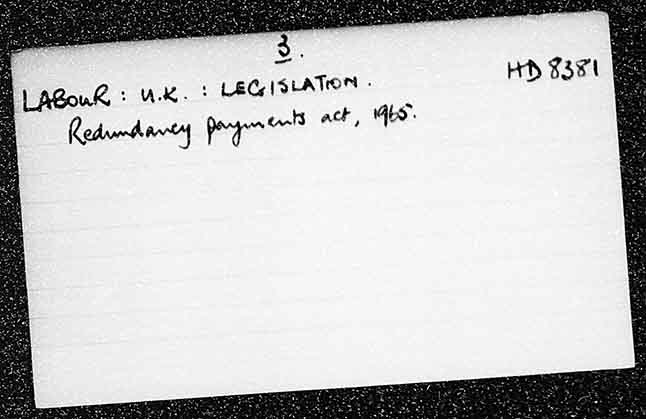 3.
LABOUR : U.K. : LEGISLATION. HD 8381
Redundancy payments act, 1965.